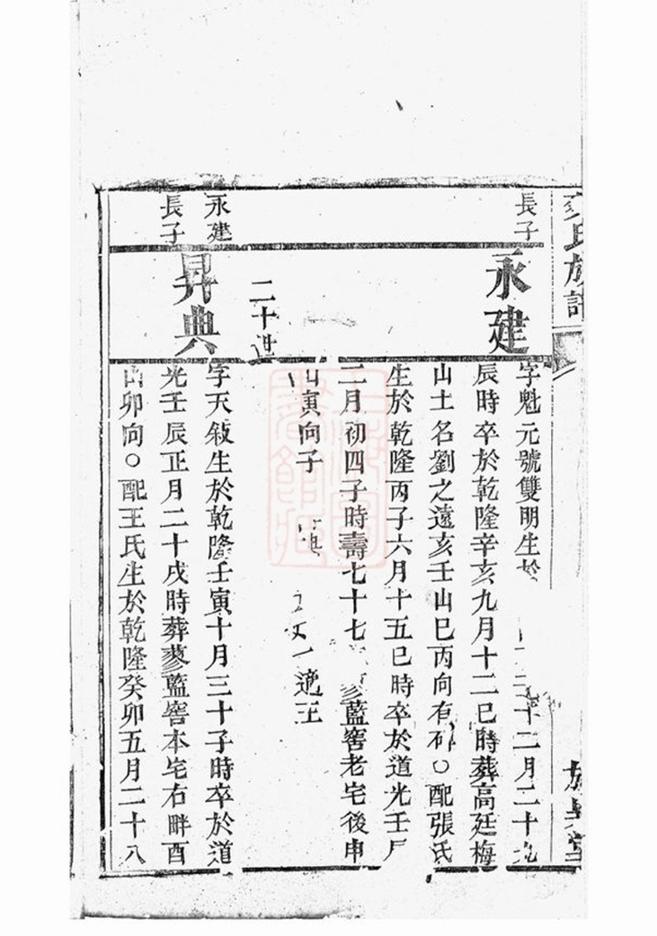 氏族譜
長子
永建
字魁元號雙明生於
二十二月二十九
辰時卒於乾隆辛亥九月十二巳時葬高廷梅
山土名劉之遠亥壬山巳丙向有石○配張氏
生於乾隆丙子六月十五巳時卒於道光壬辰
二月初四子時壽七十七
藍窖老宅後申
山寅向子
一適王
二十世
永建
長子
昇典
字天敍生於乾隆壬寅十月三十子時卒於道
光壬辰正月二十戌時葬蓼藍窖本宅右畔酉
山卯向○配王氏生於乾隆癸卯五月二十八